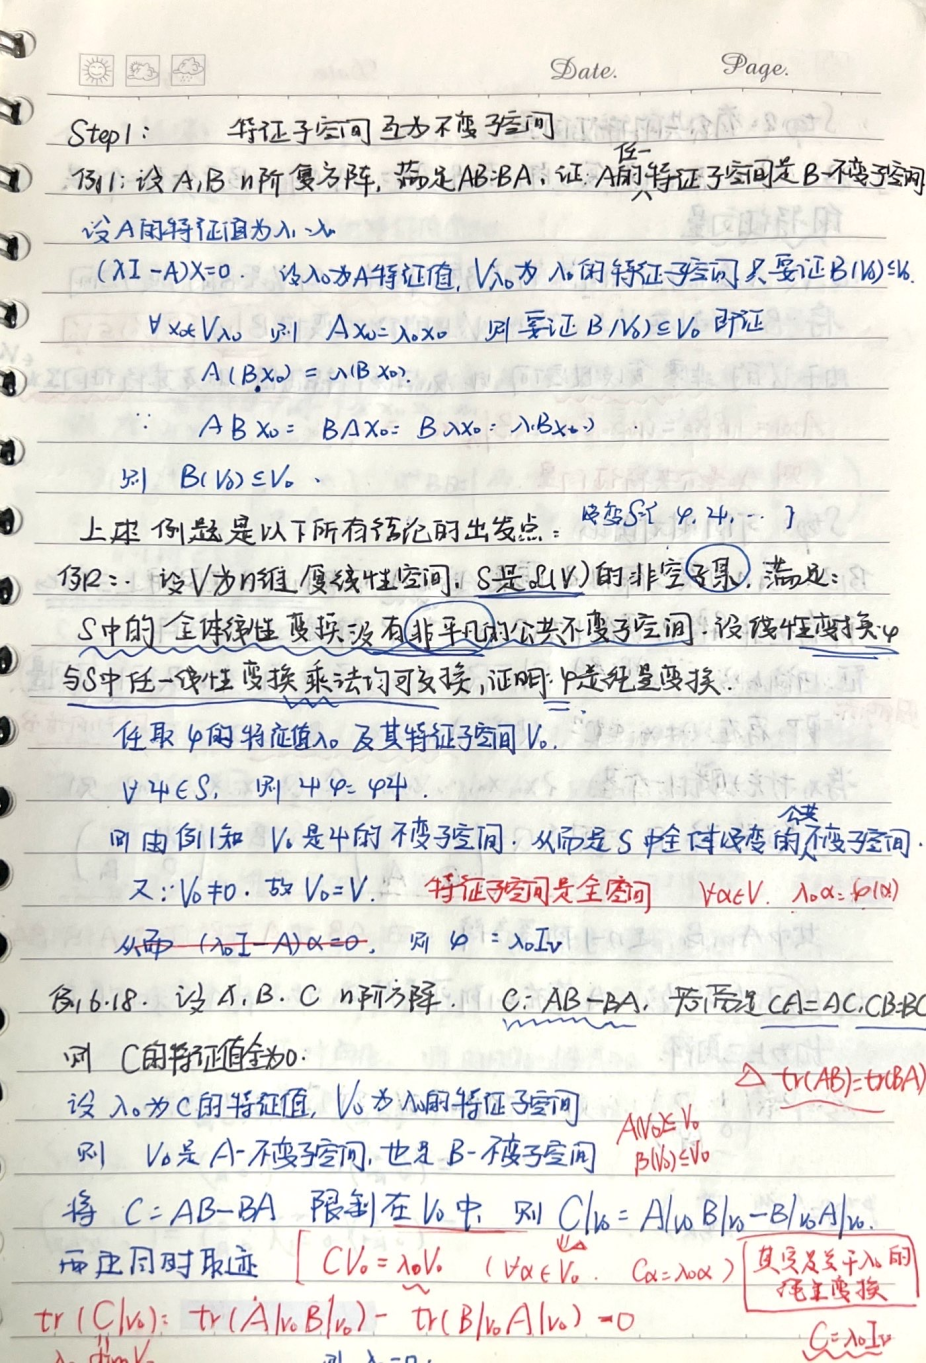 Date. Page.
Step1: 特征子空间互为不变子空间
任一
例1: 设A,B n阶复方阵, 满足AB=BA, 证: A的特征子空间是B-不变子空间
设A的特征值为λ₁~λₙ
(λI-A)X=0. 设λ₀为A特征值, Vλ₀为λ₀的特征子空间 只要证B(V₀)⊆V₀.
∀x₀∈Vλ₀ 则 Ax₀=λ₀x₀ 则要证B(V₀)⊆V₀ 即证
A(Bx₀)=λ(Bx₀).
∵ ABx₀=BAx₀=Bλx₀=λ(Bx₀)
则 B(V₀)⊆V₀.
上述例题是以下所有结论的出发点:
线变S{φ,ψ,…}
例2: 设V为n维复线性空间, S是L(V)的非空子集, 满足:
S中的全体线性变换没有非平凡的公共不变子空间. 设线性变换φ
与S中任一线性变换乘法均可交换, 证明: φ是纯量变换.
任取φ的特征值λ₀及其特征子空间V₀.
∀ψ∈S, 则ψφ=φψ.
公共
则由例1知 V₀是ψ的不变子空间. 从而是S中全体线变的不变子空间.
又∵V₀≠0. 故V₀=V. 特征子空间是全空间 ∀α∈V. λ₀α=φ(α)
从而 (λ₀I-A)α=0. 则 φ=λ₀Iᵥ
例6.18. 设A.B.C n阶方阵. C=AB-BA. 若满足CA=AC,CB=BC
则 C的特征值全为0.
△ tr(AB)=tr(BA)
设λ₀为C的特征值, V₀为λ₀的特征子空间
A(V₀)⊆V₀
则 V₀是A-不变子空间, 也是B-不变子空间
B(V₀)⊆V₀
将 C=AB-BA 限制在V₀中, 则 C|v₀=A|v₀B|v₀-B|v₀A|v₀.
两边同时取迹 [ CV₀=λ₀V₀ (∀α∈V₀. Cα=λ₀α)
其实是关于λ₀的
纯量变换
tr(C|v₀)= tr(A|v₀B|v₀)-tr(B|v₀A|v₀)=0
C=λ₀Iᵥ
λ₀ dimV₀ 则 λ₀=0.